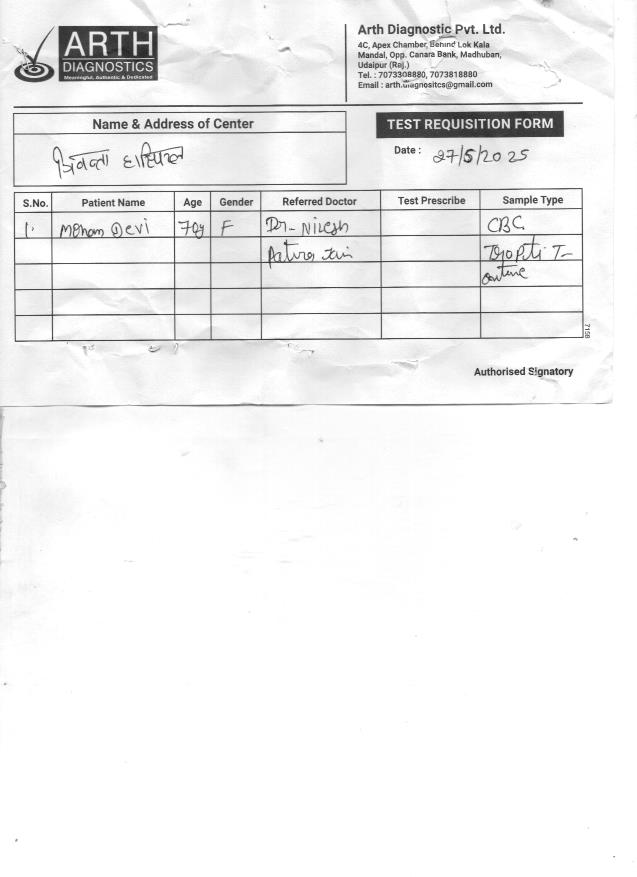 ARTH
DIAGNOSTICS
Meaningful, Authentic & Dedicated
Arth Diagnostic Pvt. Ltd.
4C, Apex Chamber, Behind Lok Kala
Mandal, Opp. Canara Bank, Madhuban,
Udaipur (Raj.)
Tel. : 7073308880, 7073818880
Email : arth.diagnositcs@gmail.com
Name & Address of Center
TEST REQUISITION FORM
Date : 27/5/2025
S.No. Patient Name Age Gender Referred Doctor Test Prescribe Sample Type
1. Mohan Devi 70y F Dr- Nilesh CBC
7198
Authorised Signatory